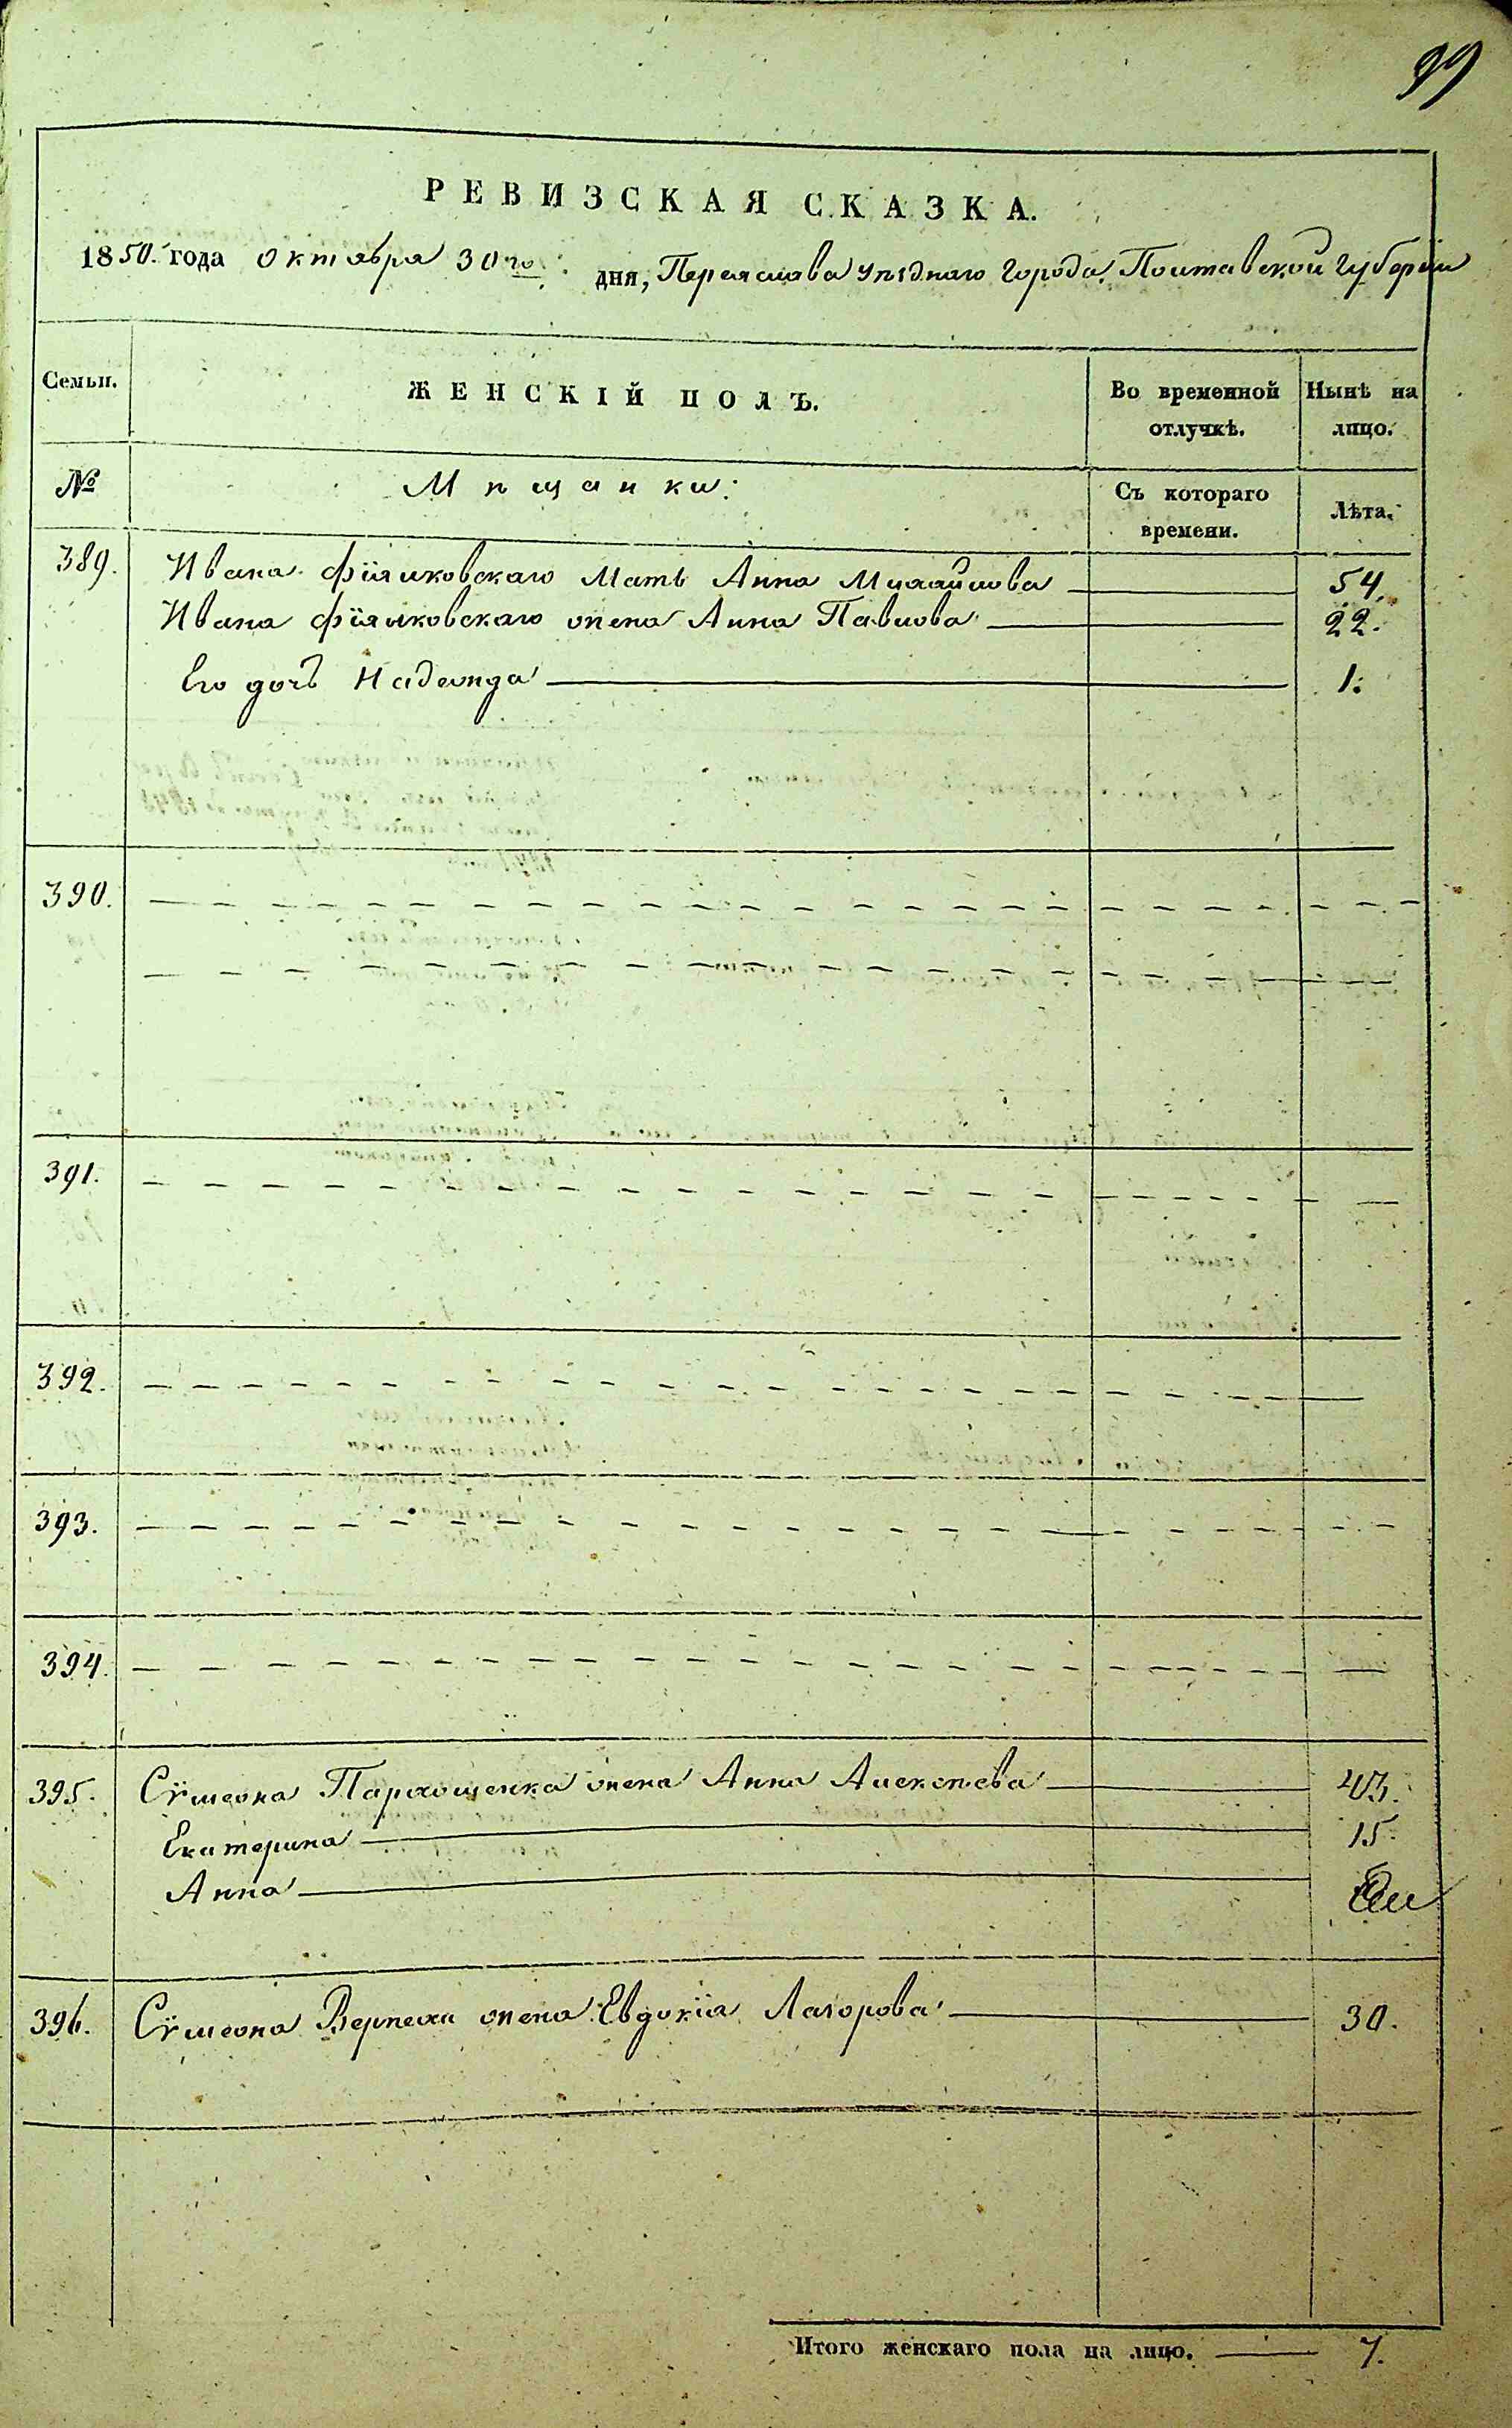 99
РЕВИЗСКАЯ СКАЗКА.
1850. года октября 30го. дня, Переяслава уѣзднаго города, Полтавской губерніи
Семьи.
ЖЕНСКІЙ ПОЛЪ.
Во временной отлучкѣ.
Нынѣ на лицо.
№
Мѣщанки:
Съ котораго времени.
Лѣта.
389. Ивана Фіялковскаго мать Анна Михайлова 54.
Ивана Фіялковскаго жена Анна Павлова 22.
Его дочь Надежда 1.
390.
391.
392.
393.
394.
395. Сѵмеона Пархоменка жена Анна Алексѣева 43.
Екатерина 15.
Анна
396. Сѵмеона Верпехи жена Евдокія Лазорова 30.
Итого женскаго пола на лицо. 7.